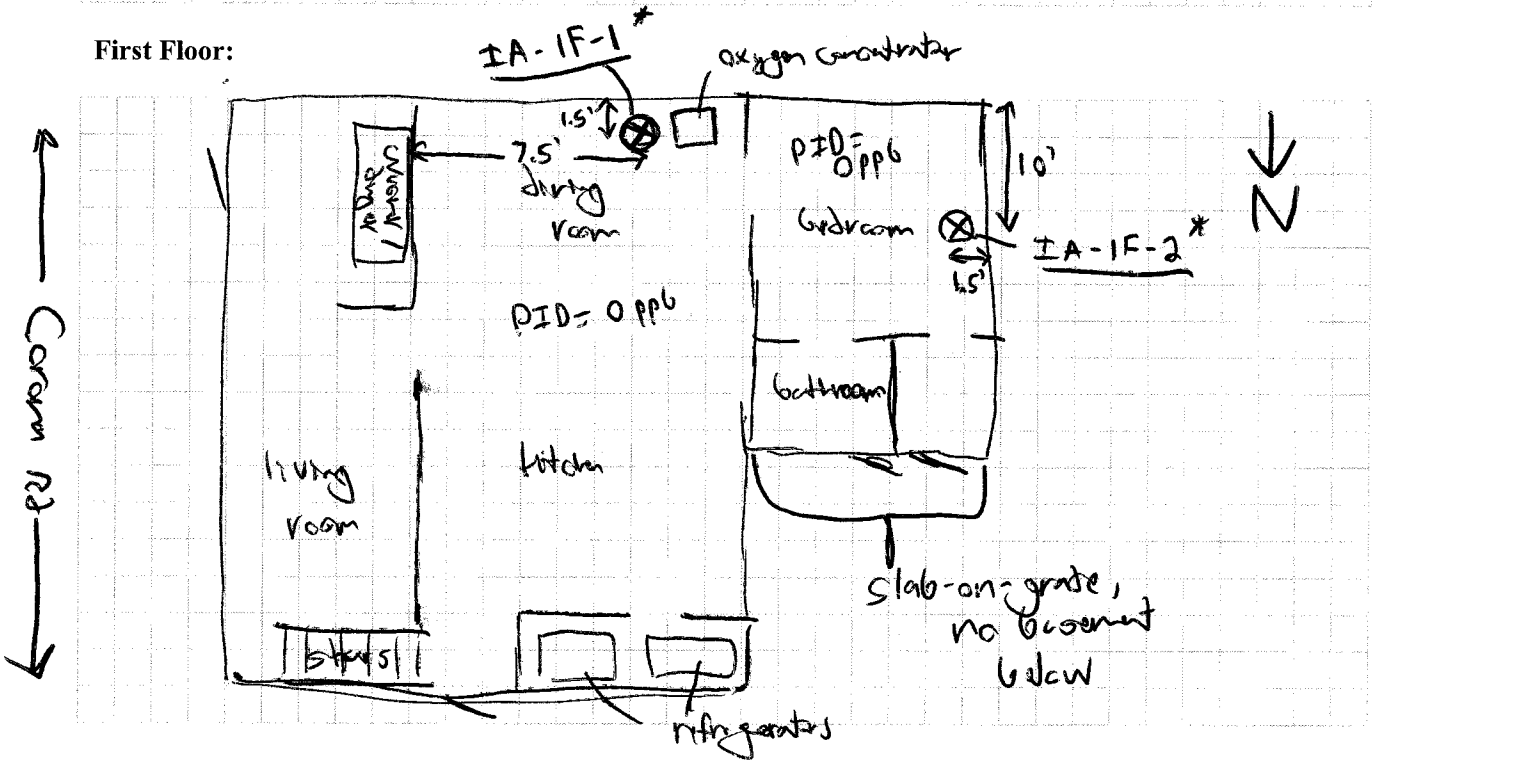 First Floor:
IA-1F-1*
oxygen concentrator
1.5'
7.5'
dining
room
PID=
0 ppb
10'
bedroom
N
IA-1F-2*
1.5'
PID= 0 ppb
Coram Rd
bathroom
living
room
kitchen
slab-on-grade,
no basement
below
stairs
refrigerators